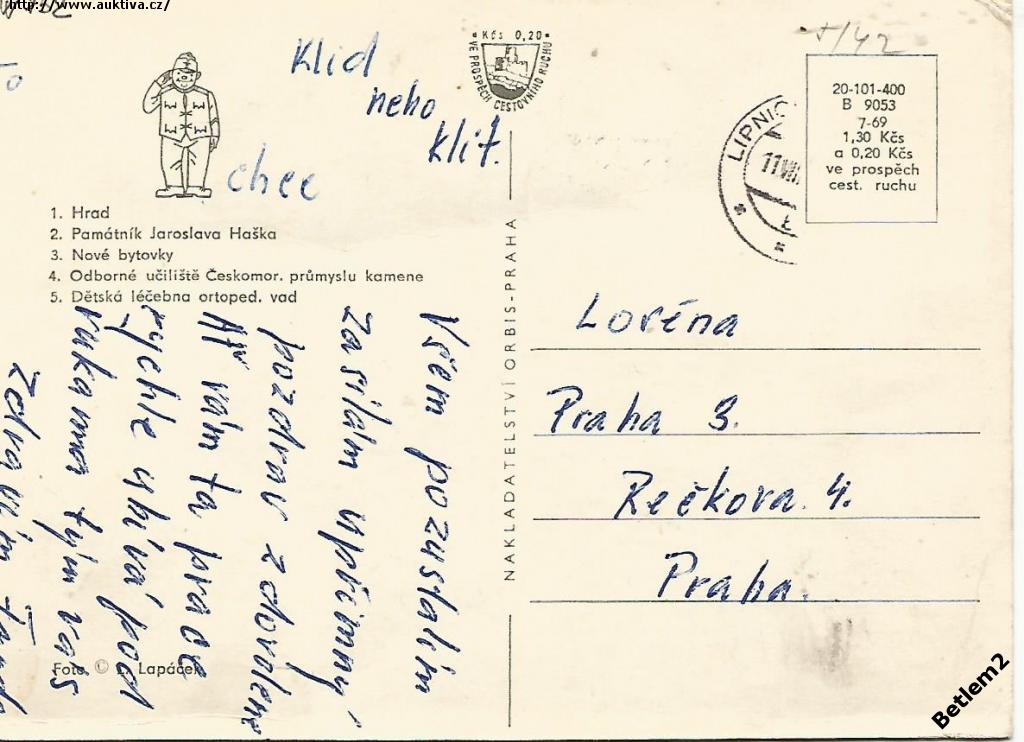 http://www.auktiva.cz/
Klid
neho
klit.
chce
Kčs 0,20
VE PROSPĚCH CESTOVNÍHO RUCHU
1/42
20-101-400
B 9053
7-69
1,30 Kčs
a 0,20 Kčs
ve prospěch
cest. ruchu
LIPNIC
11.VII.
1. Hrad
2. Památník Jaroslava Haška
3. Nové bytovky
4. Odborné učiliště Českomor. průmyslu kamene
5. Dětská léčebna ortoped. vad
Všem pozustalím
zasílám upřímný
pozdrav z dovolene
Ať vám ta prace
rychle ubívá pod
rukama tým vás
zdravím
Foto © L. Lapáček
NAKLADATELSTVÍ ORBIS-PRAHA
Loréna
Praha 3.
Rečkova. 4.
Praha.
Betlem2